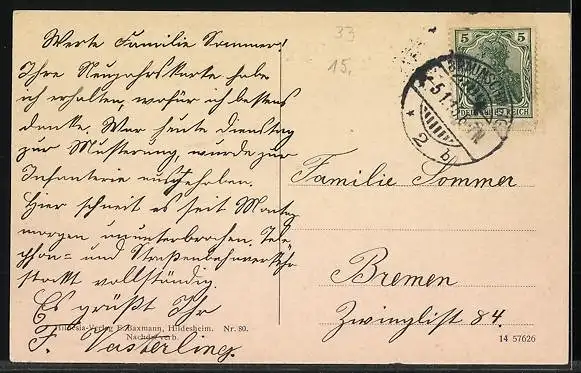 Werte Familie Sommer!
Ihre Neujahrskarte habe
ich erhalten, wofür ich bestens
danke. War heute Dienstag
zur Musterung, wurde zur
Infanterie ausgehoben.
Hier schneit es seit Montag
morgen ununterbrochen, Tele-
phon- und Straßenbahnverkehr
stockt vollständig.
Es grüßt Ihr
F. Vasterling.
Hildesia-Verlag E. Baxmann, Hildesheim. Nr. 80.
Nachdr. verb.
33
15.
5 5
DEUTSCHES REICH
BRAUNSCHWEIG
* 2 b
Familie Sommer
Bremen
Zwinglist 84.
14 57626